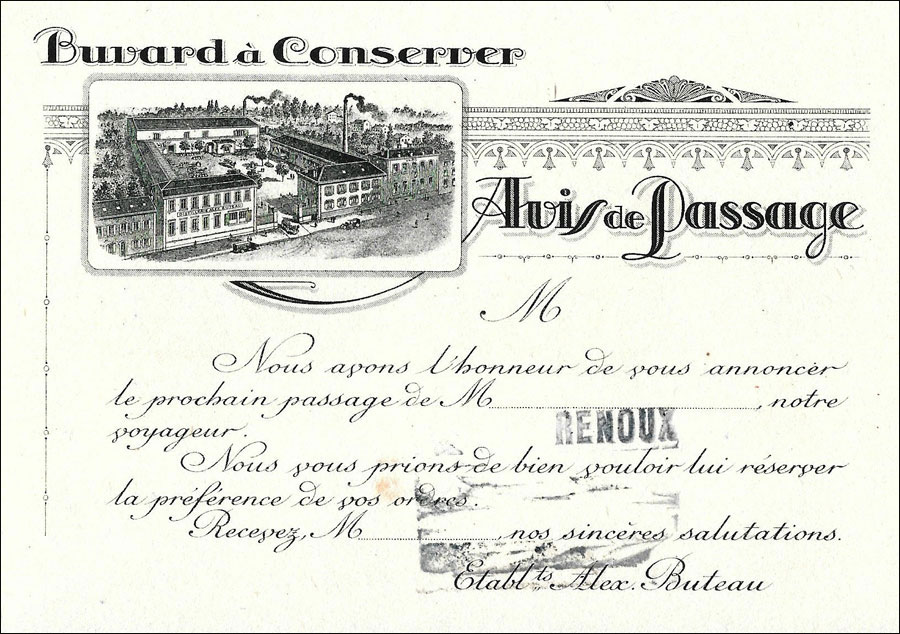 Buvard à Conserver
Avis de Passage
M
Nous avons l'honneur de vous annoncer
le prochain passage de M, notre
voyageur.
RENOUX
Nous vous prions de bien vouloir lui réserver
la préférence de vos ordres.
Recevez, M, nos sincères salutations.
Etablts Alex. Buteau